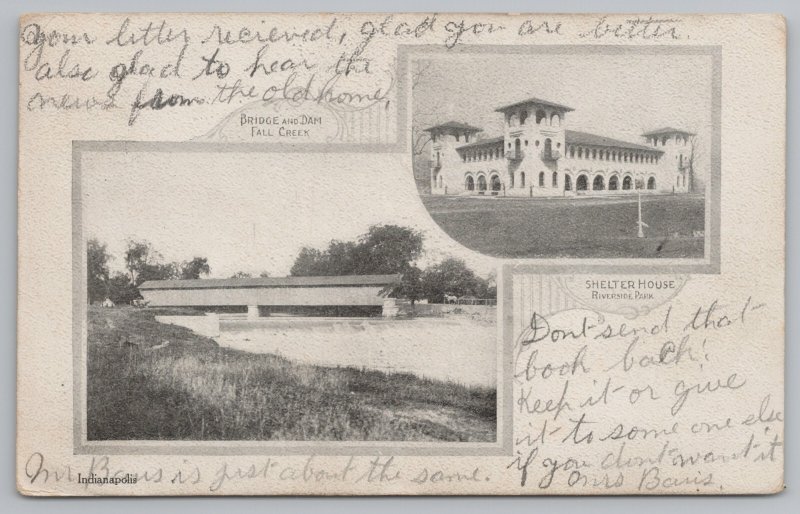 Your litter recieved, glad you are better.
also glad to hear the
news from the old home,
BRIDGE AND DAM
FALL CREEK
SHELTER HOUSE
RIVERSIDE PARK
Dont send that
book back!
Keep it or give
it to some one else
if you dont want it
Mrs Baris.
Mr Baris is just about the same.
Indianapolis